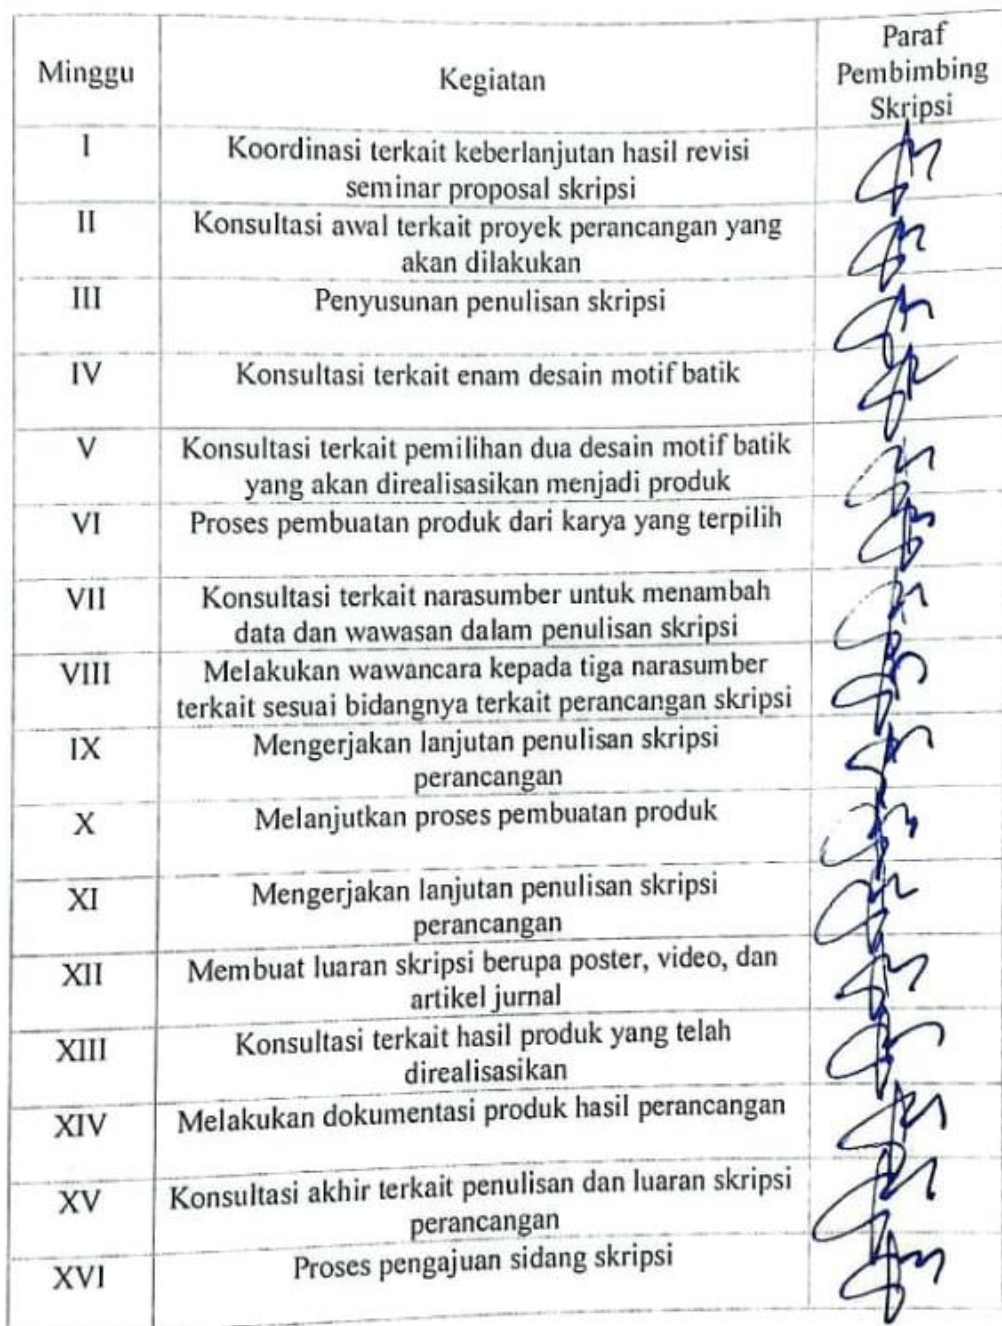 Minggu
Kegiatan
Paraf
Pembimbing
Skripsi
I
Koordinasi terkait keberlanjutan hasil revisi
seminar proposal skripsi
II
Konsultasi awal terkait proyek perancangan yang
akan dilakukan
III
Penyusunan penulisan skripsi
IV
Konsultasi terkait enam desain motif batik
V
Konsultasi terkait pemilihan dua desain motif batik
yang akan direalisasikan menjadi produk
VI
Proses pembuatan produk dari karya yang terpilih
VII
Konsultasi terkait narasumber untuk menambah
data dan wawasan dalam penulisan skripsi
VIII
Melakukan wawancara kepada tiga narasumber
terkait sesuai bidangnya terkait perancangan skripsi
IX
Mengerjakan lanjutan penulisan skripsi
perancangan
X
Melanjutkan proses pembuatan produk
XI
Mengerjakan lanjutan penulisan skripsi
perancangan
XII
Membuat luaran skripsi berupa poster, video, dan
artikel jurnal
XIII
Konsultasi terkait hasil produk yang telah
direalisasikan
XIV
Melakukan dokumentasi produk hasil perancangan
XV
Konsultasi akhir terkait penulisan dan luaran skripsi
perancangan
XVI
Proses pengajuan sidang skripsi